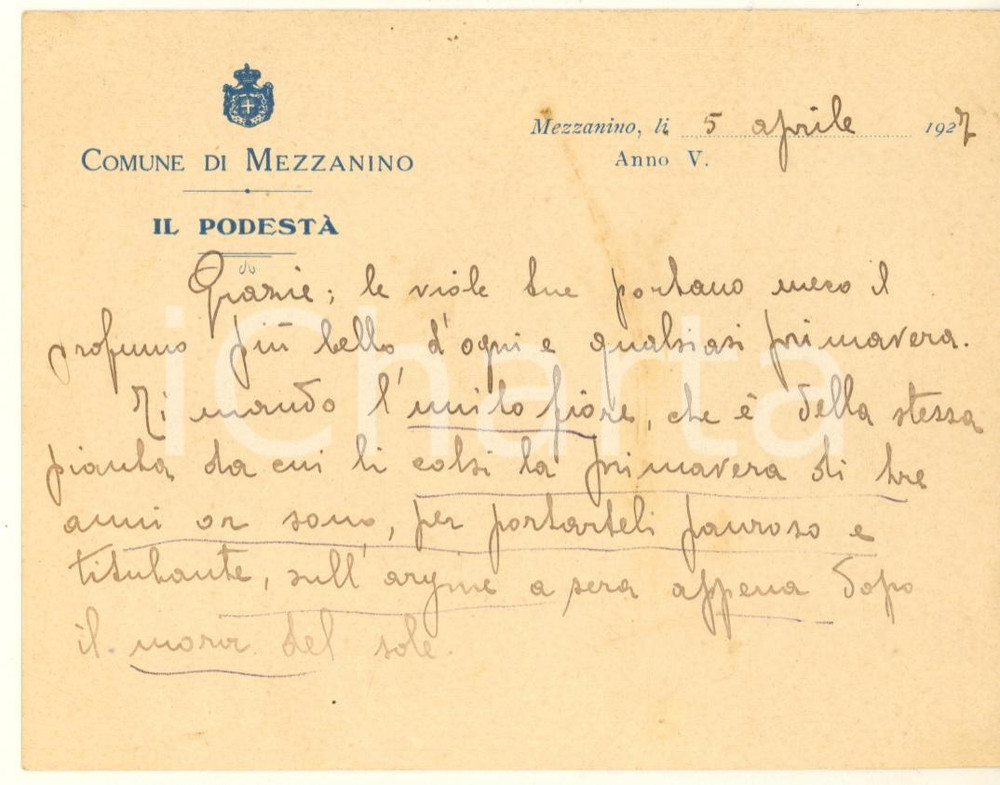 COMUNE DI MEZZANINO
IL PODESTÀ
Mezzanino, li 5 aprile 1927
Anno V.
Grazie; le viole tue portano meco il
profumo più bello d'ogni e qualsiasi primavera.
Ti mando l'unito fiore, che è della stessa
pianta da cui li colsi la primavera di tre
anni or sono, per portarteli pauroso e
titubante, sull'argine a sera appena dopo
il morir del sole.
iCharta